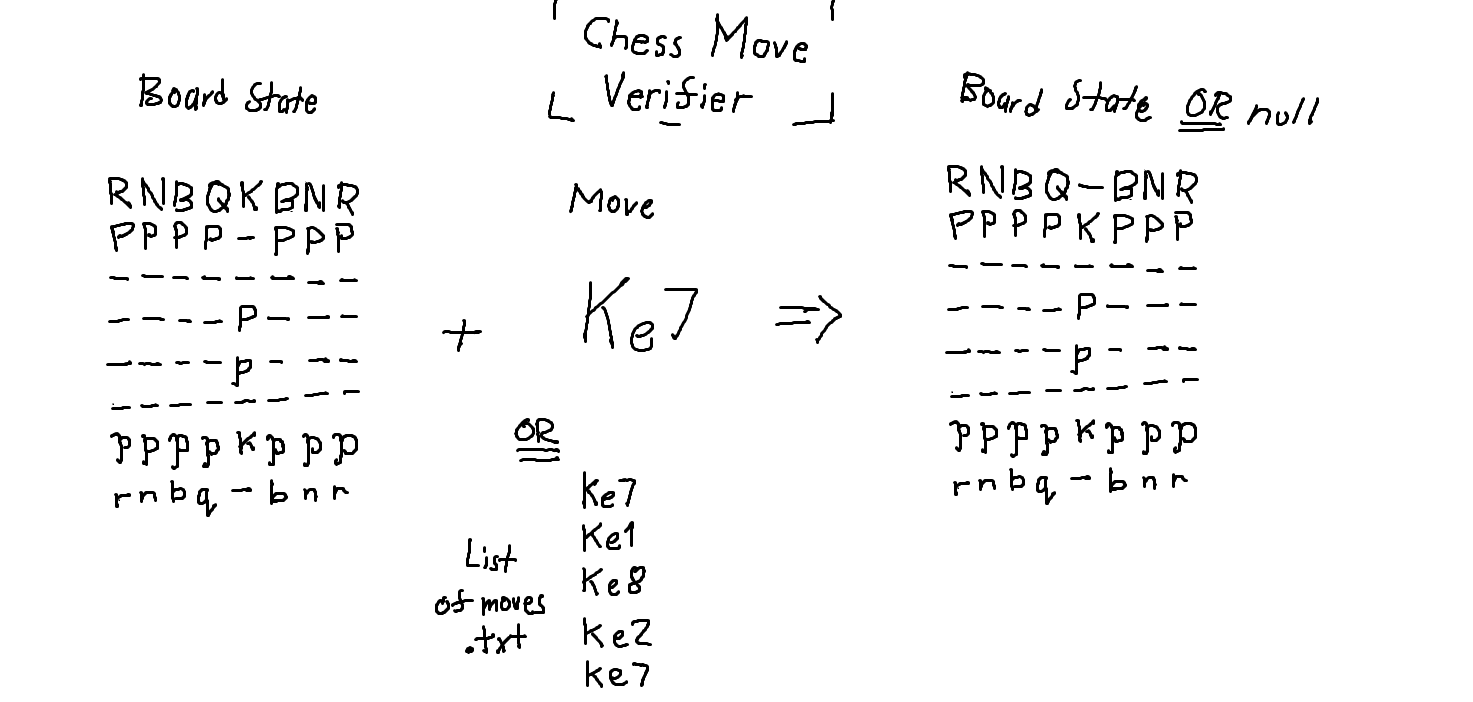 Chess Move
Verifier
Board State
RNBQKBNR
PPPP-PPP
--------
----P---
----p---
--------
ppppkppp
rnbq-bnr
+
Move
Ke7
OR
List
of moves
.txt
Ke7
Ke1
Ke8
Ke2
ke7
=>
Board State OR null
RNBQ-BNR
PPPPKPPP
--------
----P---
----p---
--------
ppppkppp
rnbq-bnr